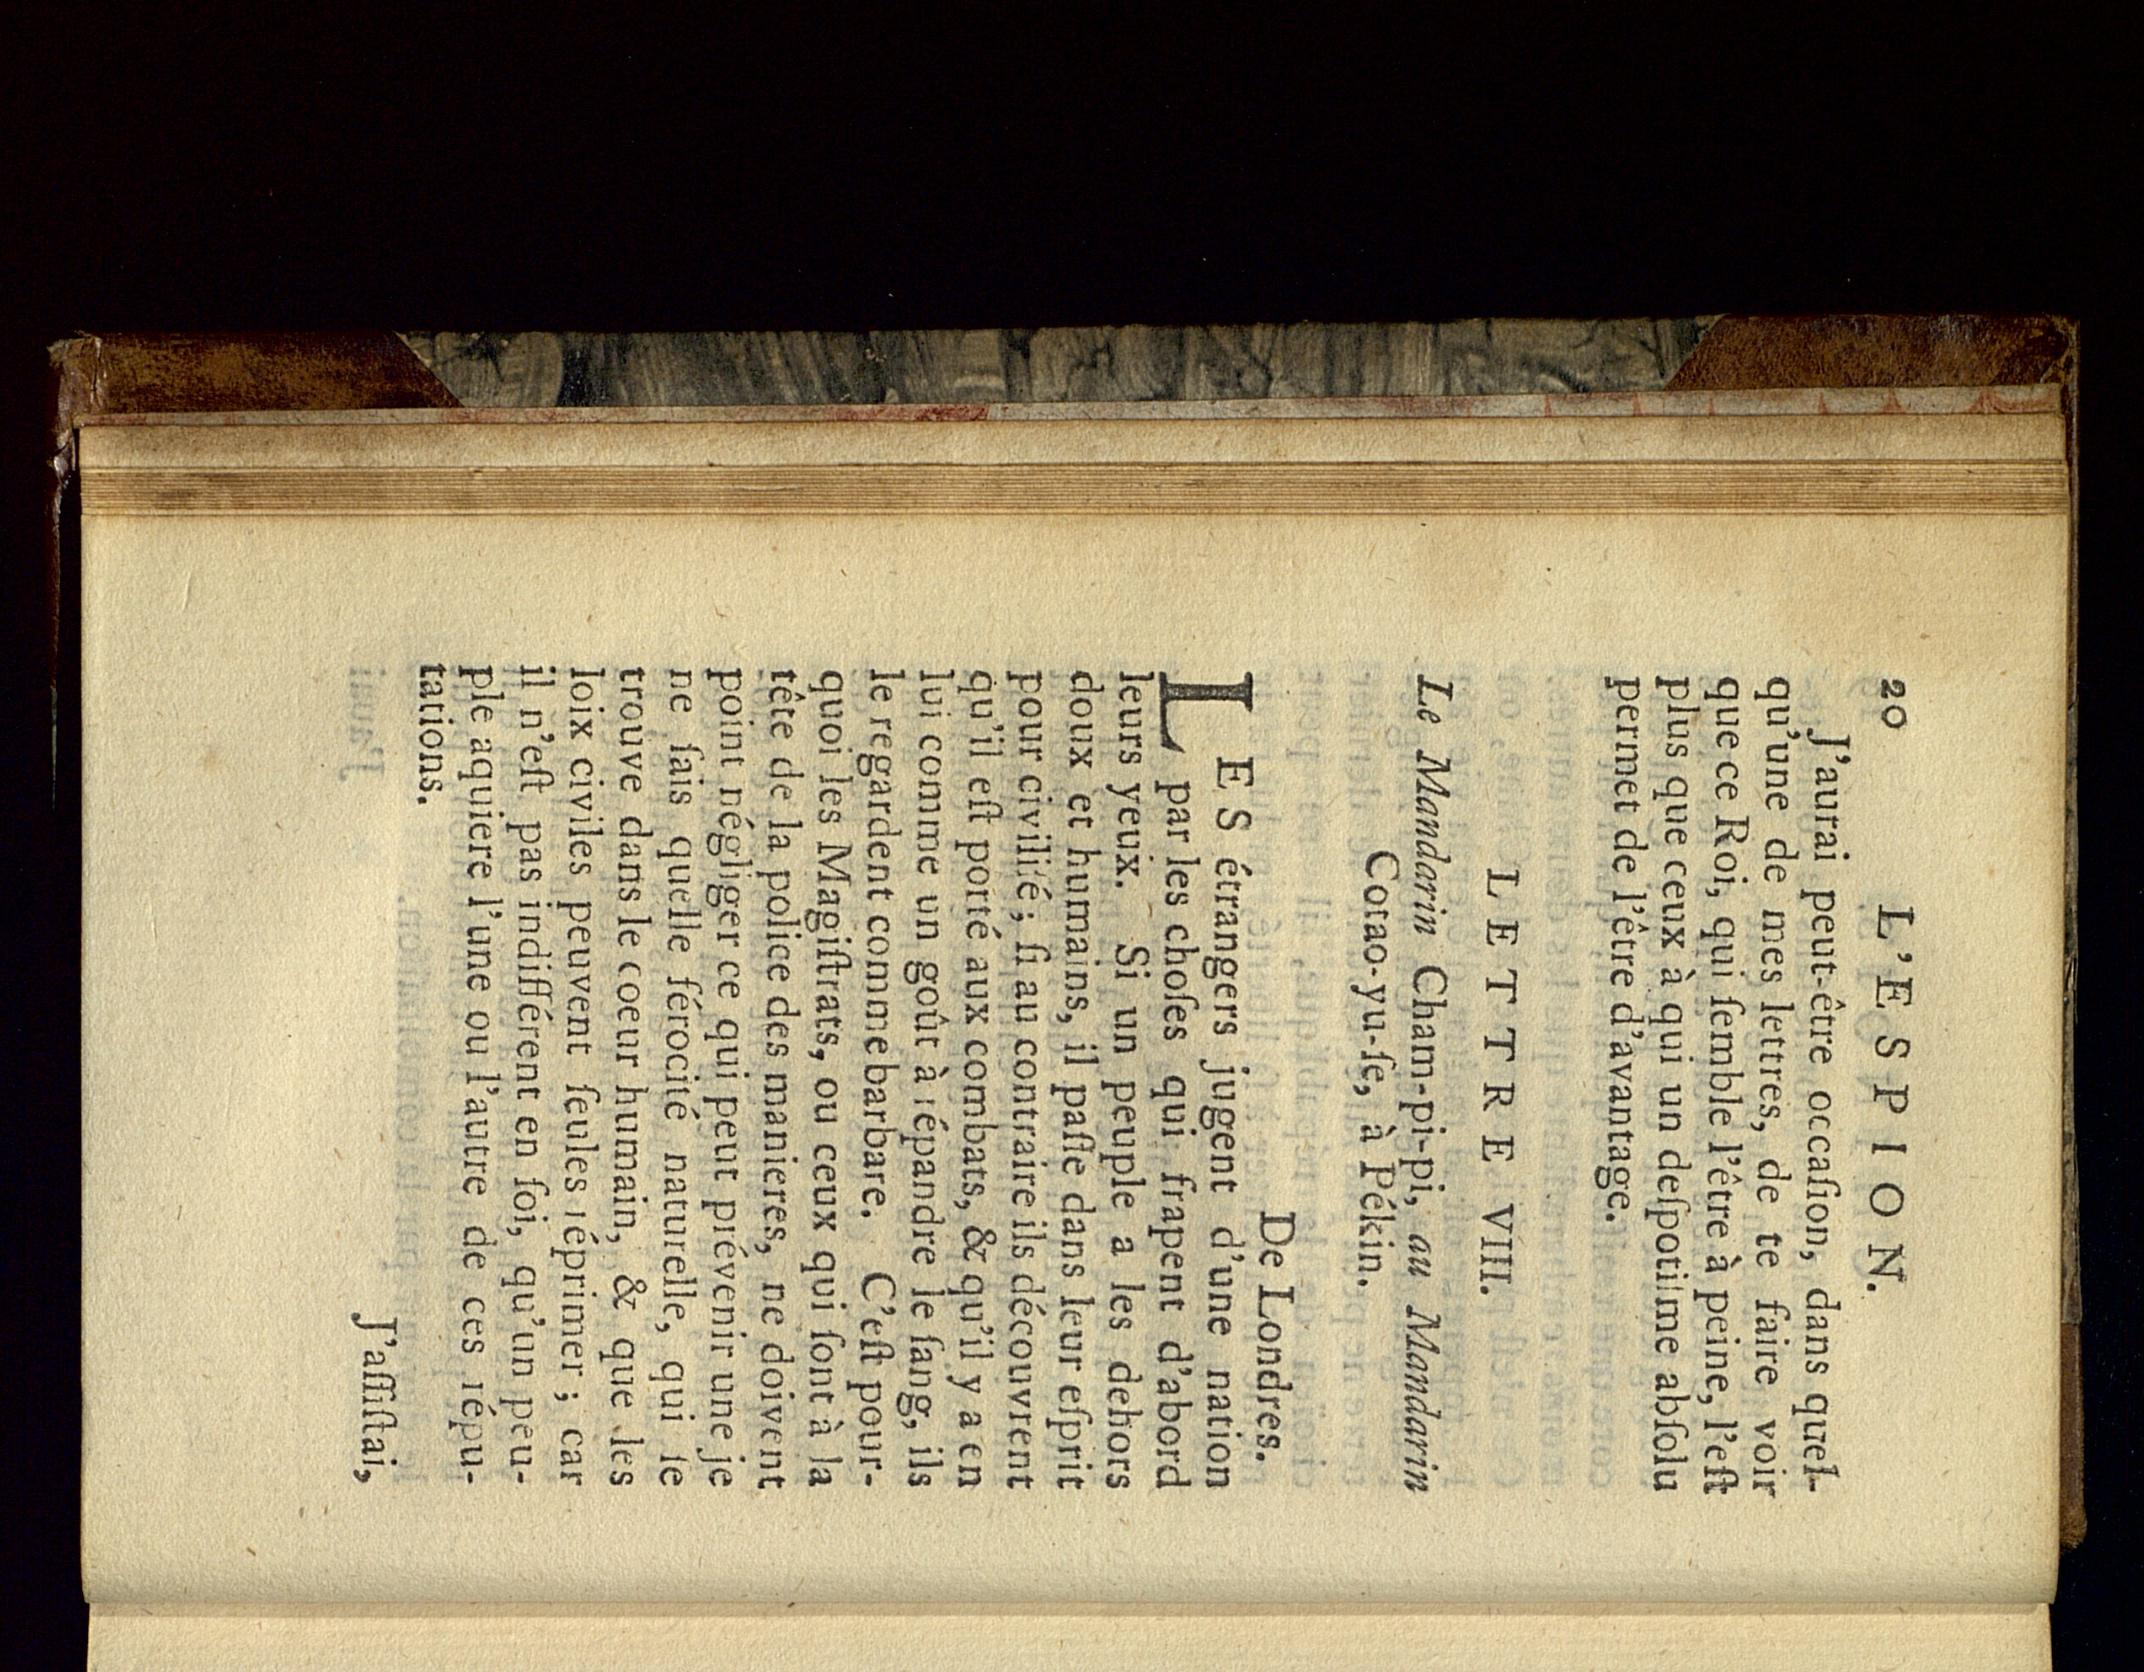 20 L'ESPION.
J'aurai peut-être occaſion, dans quel-
qu'une de mes lettres, de te faire voir
que ce Roi, qui ſemble l'être à peine, l'eſt
plus que ceux à qui un deſpotiſme abſolu
permet de l'être d'avantage.
LETTRE VIII.
Le Mandarin Cham-pi-pi, au Mandarin
Cotao-yu-ſe, à Pékin.
De Londres.
LES étrangers jugent d'une nation
par les choſes qui frapent d'abord
leurs yeux. Si un peuple a les dehors
doux et humains, il paſſe dans leur eſprit
pour civilité; ſi au contraire ils découvrent
qu'il eſt porté aux combats, & qu'il y a en
lui comme un goût à répandre le ſang, ils
le regardent comme barbare. C'eſt pour-
quoi les Magiſtrats, ou ceux qui ſont à la
tête de la police des manieres, ne doivent
point négliger ce qui peut prévenir une je
ne ſais quelle férocité naturelle, qui ſe
trouve dans le coeur humain, & que les
loix civiles peuvent ſeules réprimer; car
il n'eſt pas indifférent en ſoi, qu'un peu-
ple aquiere l'une ou l'autre de ces répu-
tations.
J'aſſiſtai,